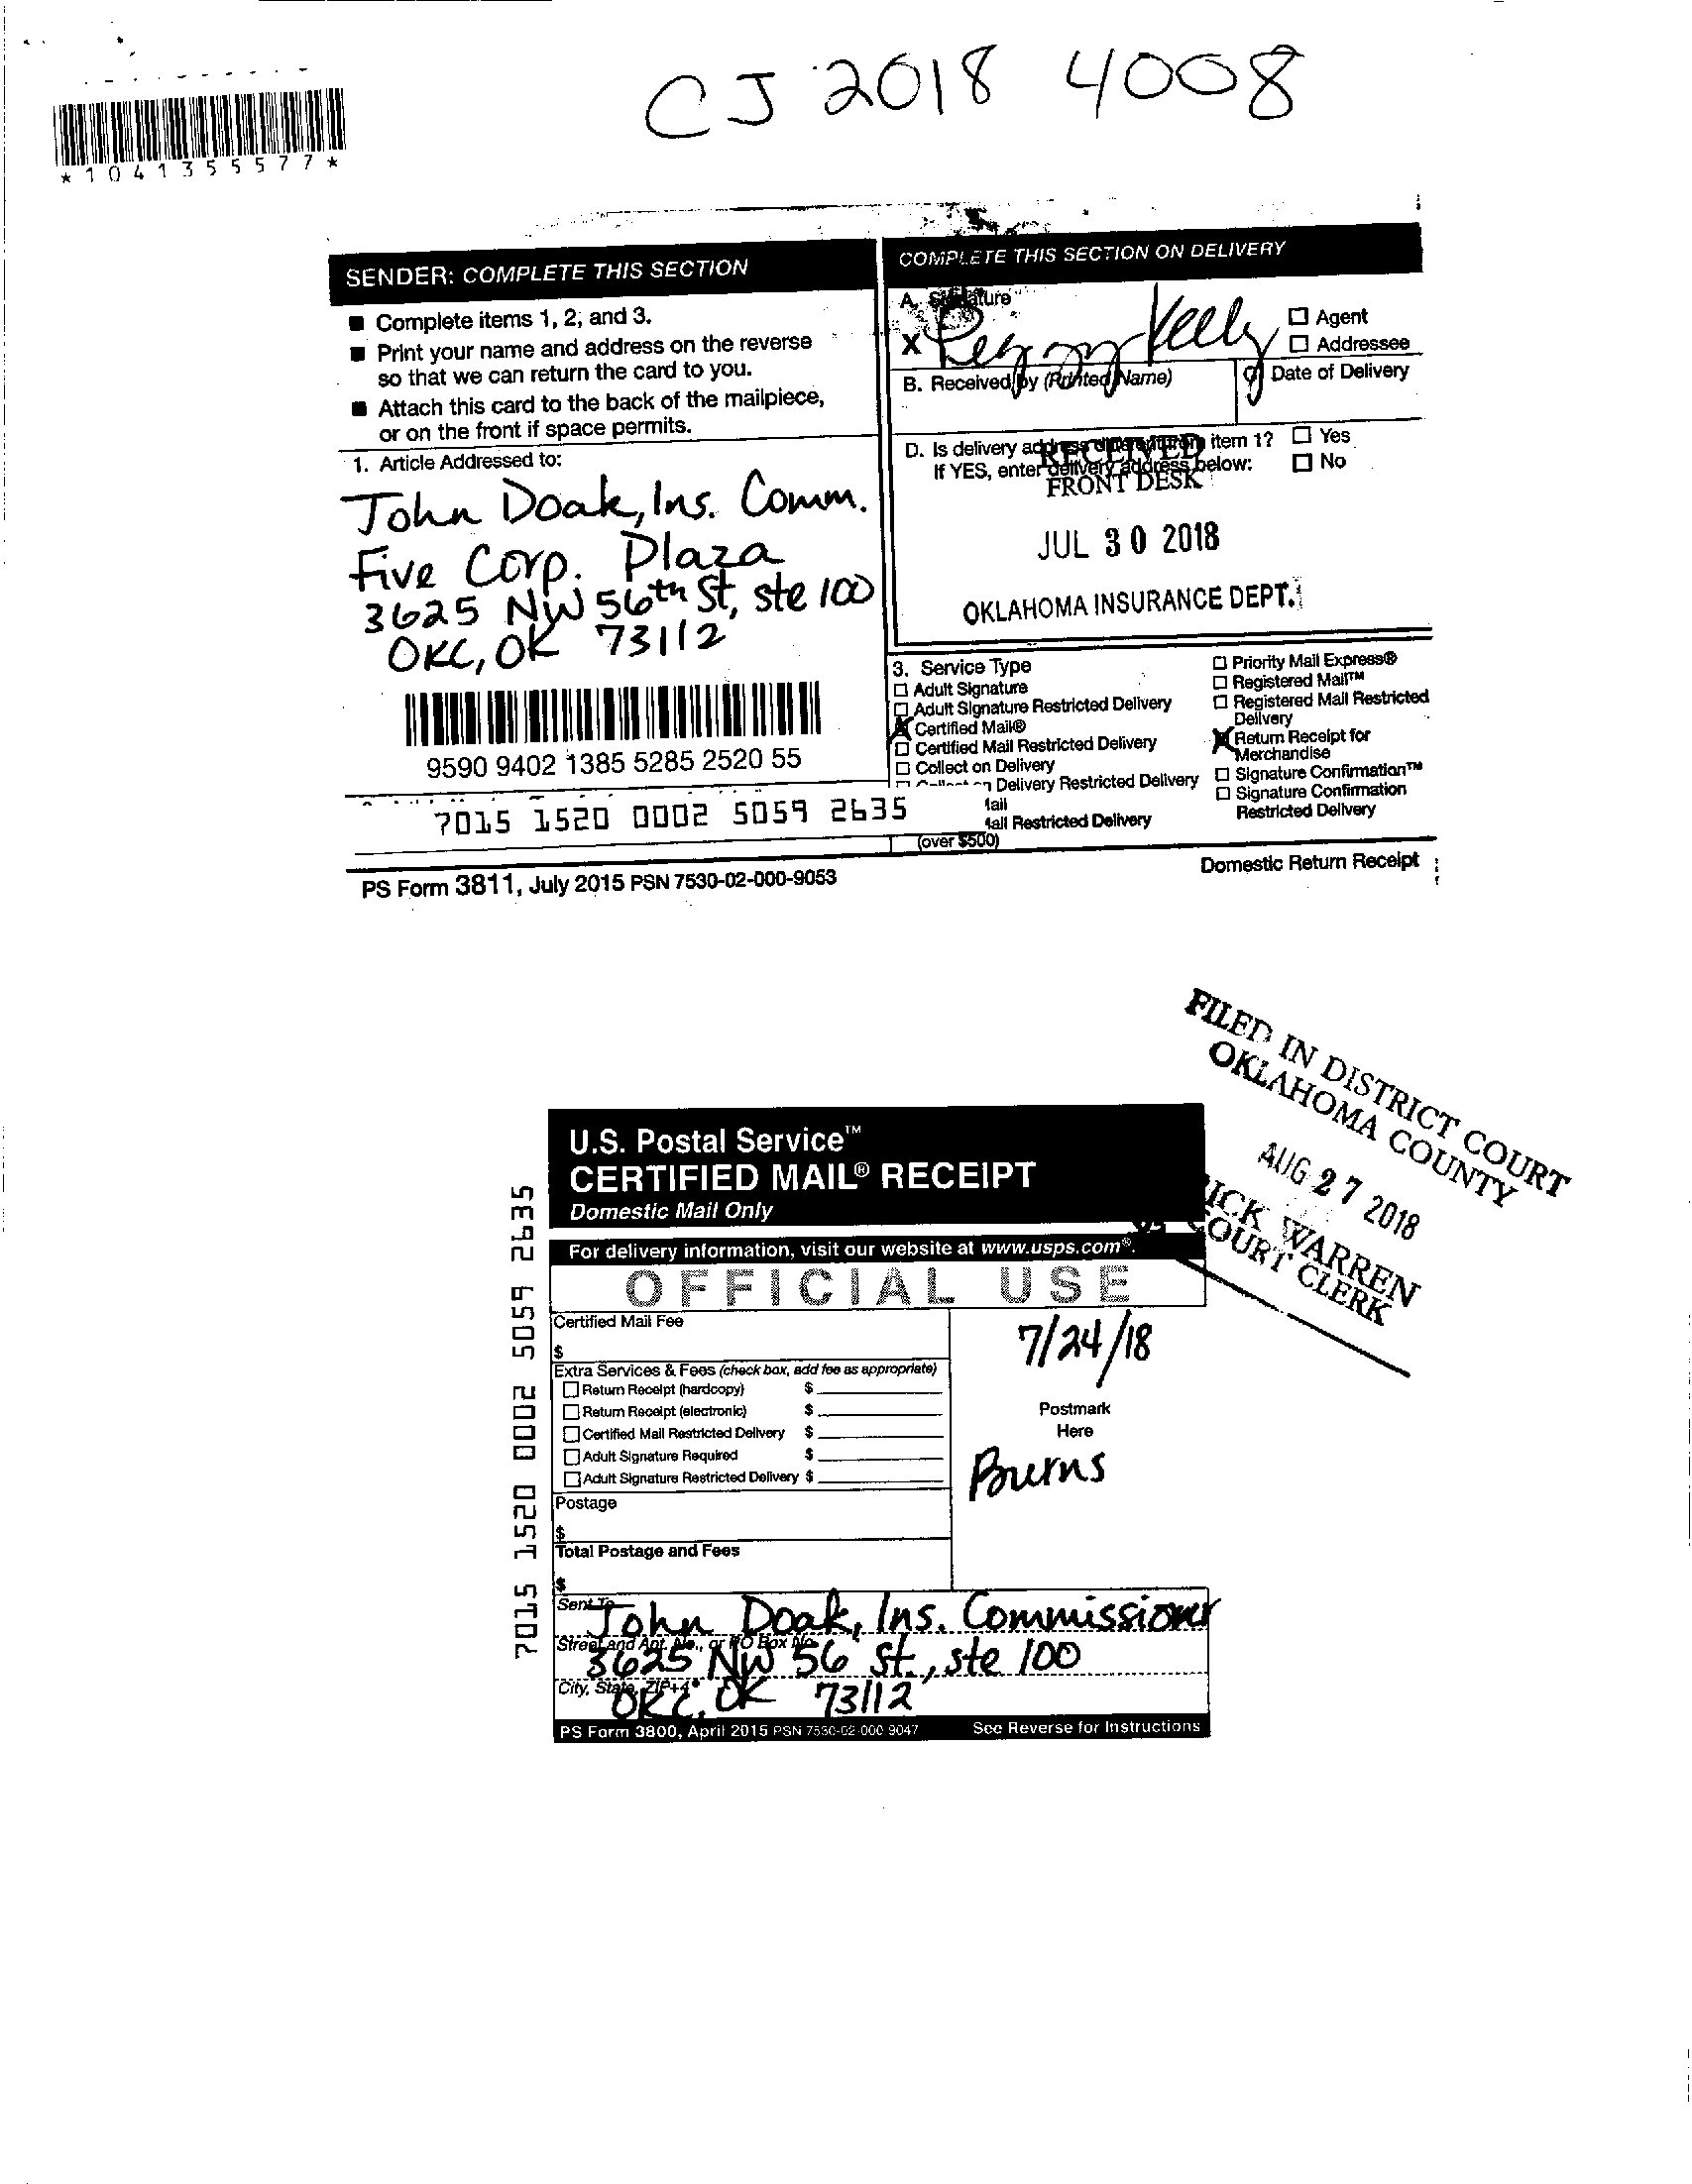 CJ 2018 4008
*1041355577*
SENDER: COMPLETE THIS SECTION
■ Complete items 1, 2, and 3.
■ Print your name and address on the reverse
so that we can return the card to you.
■ Attach this card to the back of the mailpiece,
or on the front if space permits.
1. Article Addressed to:
John Doak, Ins. Comm.
Five Corp. Plaza
3625 NW 56th St, ste 100
OKC, OK 73112
9590 9402 1385 5285 2520 55
7015 1520 0002 5059 2635
PS Form 3811, July 2015 PSN 7530-02-000-9053
COMPLETE THIS SECTION ON DELIVERY
A. Signature
X Peggy Kelly
☐ Agent
☐ Addressee
B. Received by (Printed Name)
Date of Delivery
D. Is delivery address different from item 1? ☐ Yes
If YES, enter delivery address below: ☐ No
RECEIVED
FRONT DESK
JUL 30 2018
OKLAHOMA INSURANCE DEPT.
3. Service Type
☐ Adult Signature
☐ Adult Signature Restricted Delivery
Certified Mail®
☐ Certified Mail Restricted Delivery
☐ Collect on Delivery
Delivery Restricted Delivery
Restricted Delivery
(over $500)
☐ Priority Mail Express®
☐ Registered Mail™
☐ Registered Mail Restricted
Delivery
Return Receipt for
Merchandise
☐ Signature Confirmation™
☐ Signature Confirmation
Restricted Delivery
Domestic Return Receipt
FILED IN DISTRICT COURT
OKLAHOMA COUNTY
AUG 27 2018
WARREN
COURT CLERK
7015 1520 0002 5059 2635
U.S. Postal Service™
CERTIFIED MAIL® RECEIPT
Domestic Mail Only
For delivery information, visit our website at www.usps.com®.
OFFICIAL USE
Certified Mail Fee
$
Extra Services & Fees (check box, add fee as appropriate)
☐ Return Receipt (hardcopy) $
☐ Return Receipt (electronic) $
☐ Certified Mail Restricted Delivery $
☐ Adult Signature Required $
☐ Adult Signature Restricted Delivery $
Postage
$
Total Postage and Fees
$
7/24/18
Postmark
Here
Burns
Sent To
John Doak, Ins. Commissioner
Street and Apt. No., or PO Box No.
3625 NW 56 st., ste 100
City, State, ZIP+4®
OKC, OK 73112
PS Form 3800, April 2015 PSN 7530-02-000-9047 See Reverse for Instructions